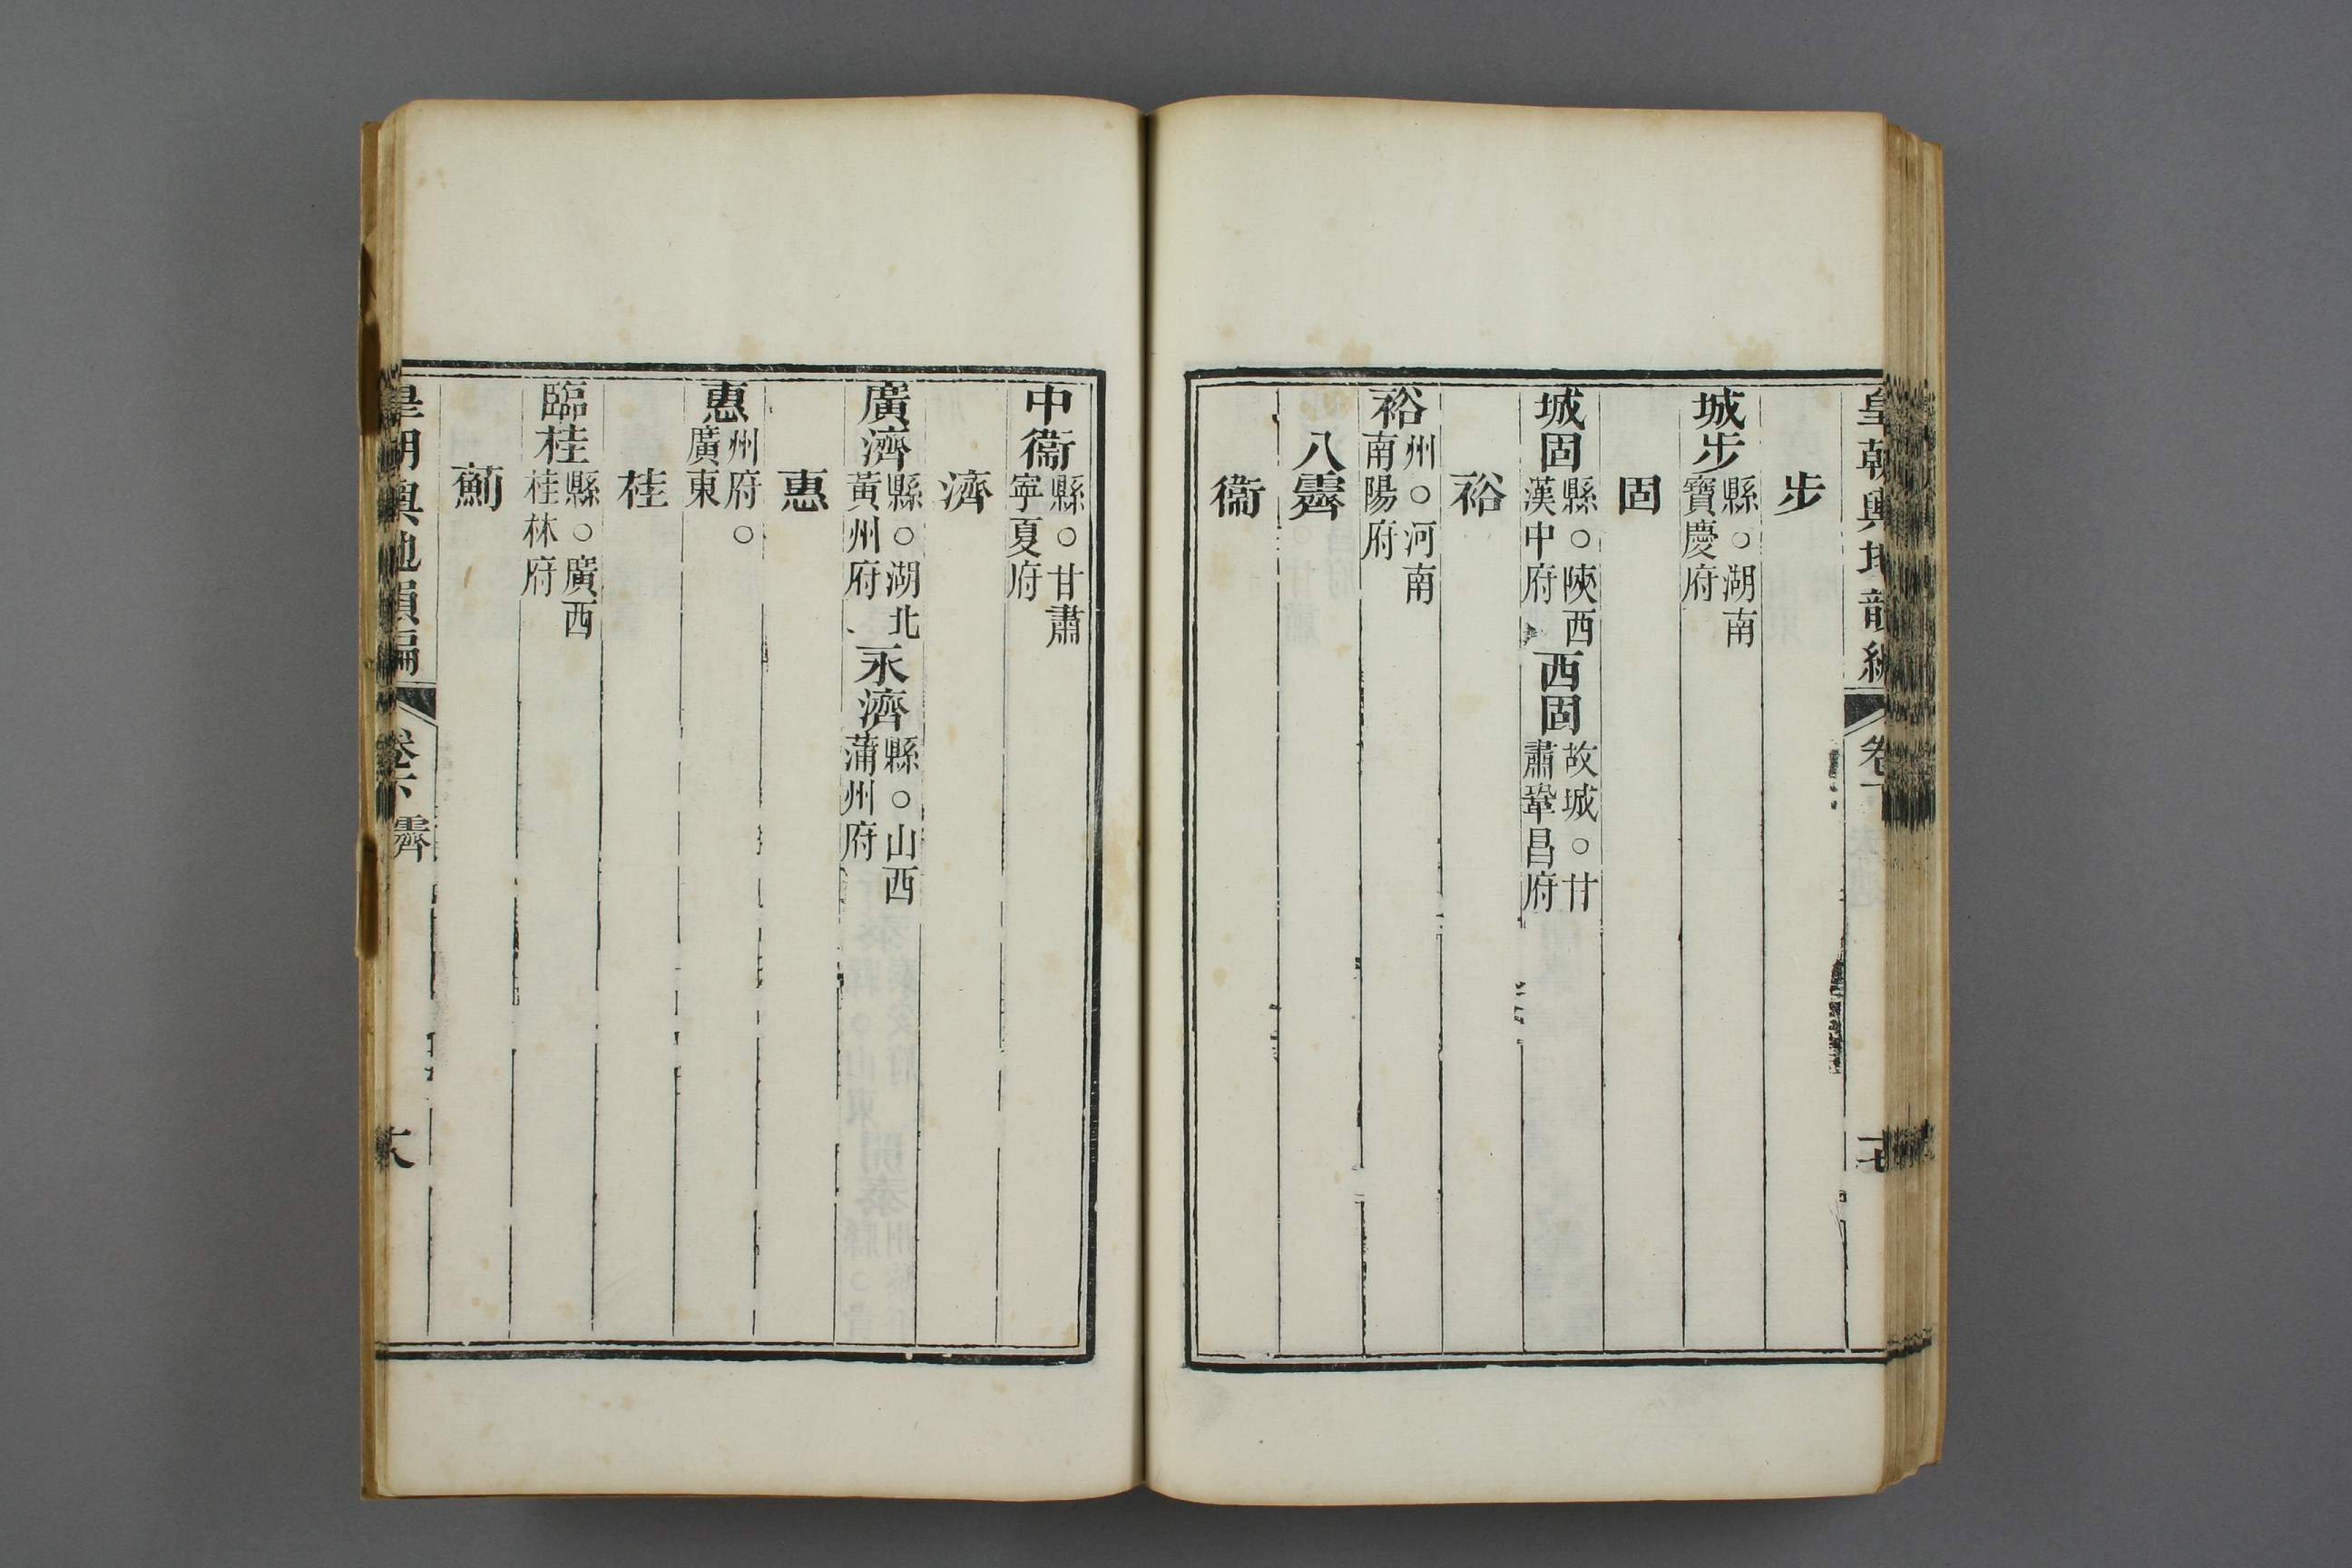 皇朝輿地韻編 卷下 十七
步
城步 縣○湖南寶慶府
固
城固 縣○陝西漢中府 西固 故城○甘肅鞏昌府
裕
裕 州○河南南陽府
八霽
衞
中衞 縣○甘肅寧夏府
濟
廣濟 縣○湖北黃州府 永濟 縣○山西蒲州府
惠
惠 州府○廣東
桂
臨桂 縣○廣西桂林府
薊
皇朝輿地韻編 卷下 霽